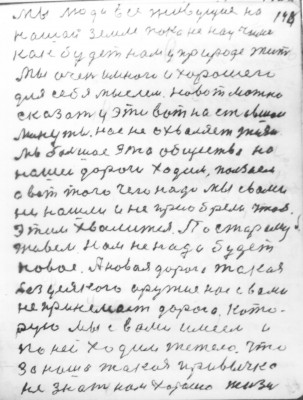 Мы люди все живущие на
нашой земли пока не научимся
как будет нам у природе жить.
Мы очен много и хорошего
для себя мыслем. Но вот можно
сказат у эти вот наставшом
минуты. нас не охваляет
Мы большое это общество на
нашей дороги ходим, ползаем
а вот того чего надо мы с вами
не нашли и не приобрели чтоб
этим хвалится. По старому
живем нам не надо будет
новое. А новая дорога такая
без усякого оружия нас с вами
не принемает дорога. Кото-
рую мы с вами имеем и
по ней ходим тежело, что
за наша такая привычка
не знат нам хорошо жизн